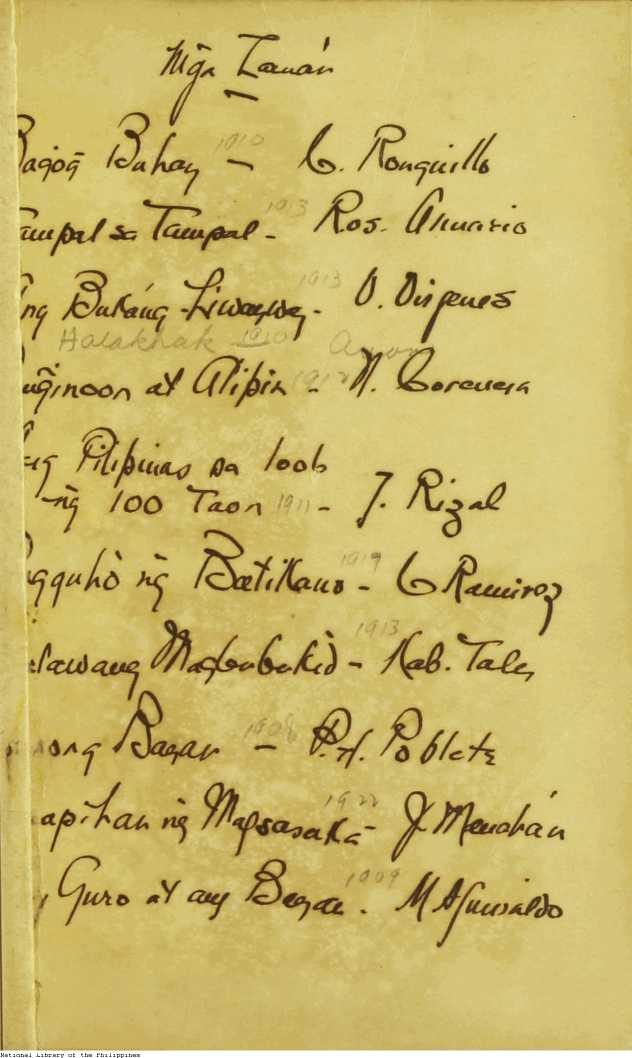 Mg̃a Lamán
Bagog̃ Buhay 1910 – C. Ronquillo
Tampal sa Tampal - 1913 Ros. Almario
Ang Bukáng-Liwayway - 1913 V. Diogenes
Halakhak 1920
Panğinoon at Alipin - 1912 N.
ang Pilipinas sa loob
-ng̃ 100 Taon 1911 - J. Rizal
ng̃ Batikano - 1919 C Ramirez
Dalawang Magbubukid - 1913 Kab. Tales
Bayan 1908 – P. H. Poblete
ng̃ Magsasaká - 1922 J. Menchán
Guro at ang Bayan. 1909 M Aguinaldo
National Library of the Philippines